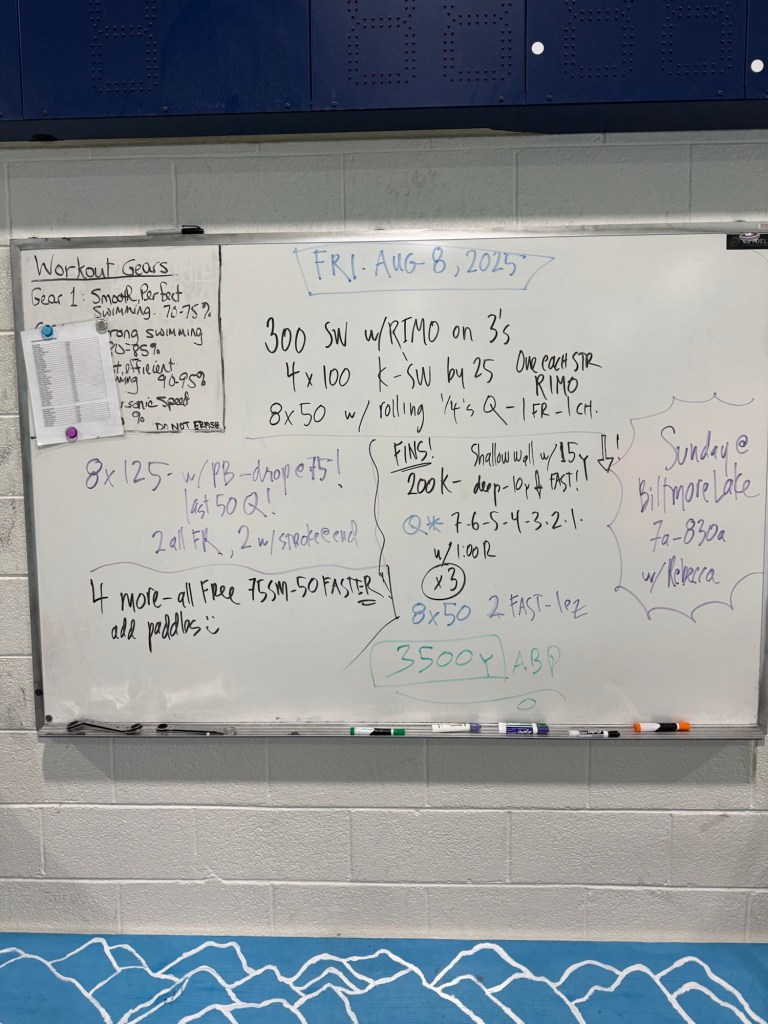 Workout Gears
Gear 1: Smooth, Perfect
SWIMMING. 70-75%
rong SWIMMING
80-85%
t, efficient
ming 90-95%
sonic Speed
%
DO NOT ERASE
FRI. AUG 8, 2025
300 SW w/RIMO on 3's
4 x 100 K-SW by 25 One each STR
RIMO
8x50 w/ rolling 1/4's Q - 1 FR - 1 CH.
8x125- w/ PB-drop@75!
last 50 Q!
2 all FR, 2 w/stroke@end
4 more-all Free 75SM-50 FASTER!
add paddles
FINS! Shallow wall w/ 15y
200 K- deep-10y FAST!
Q* 7-6-5-4-3-2-1.
w/ 1:00 R
x3
8x50 2 FAST-1ez
3500y ABP
Sunday @
Biltmore Lake
7a-830a
w/ Rebecca